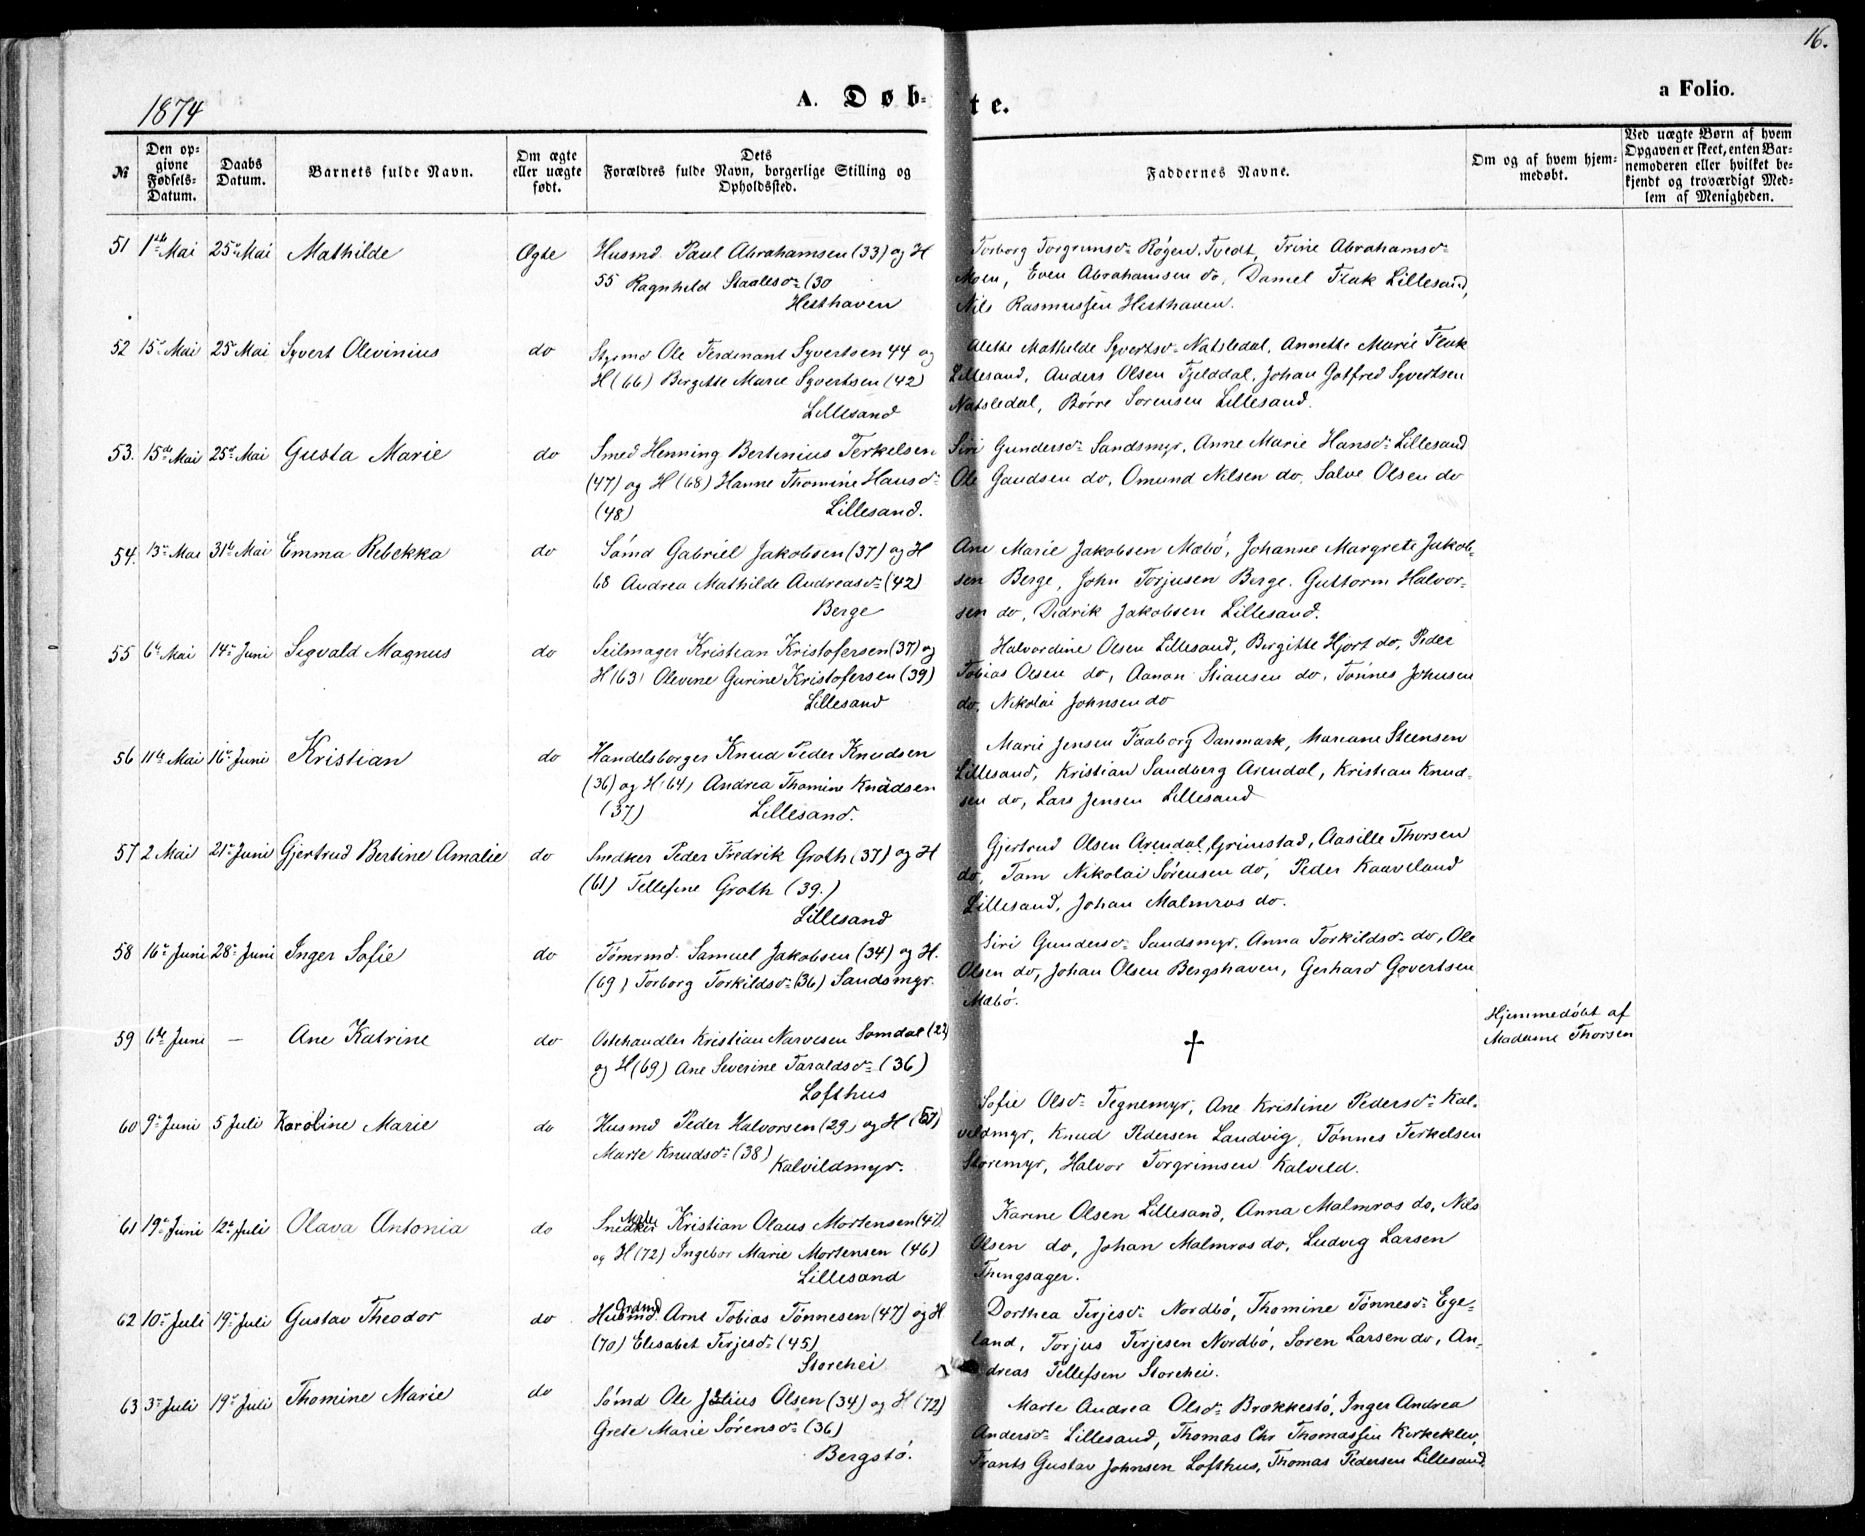 16.
1874
A. Døbte.
a Folio.
№
Den opgivne Fødsels-Datum.
Daabs Datum.
Barnets fulde Navn.
Om ægte eller uægte født.
Dets Forældres fulde Navn, borgerlige Stilling og Opholdssted.
Faddernes Navne.
Om og af hvem hjemmedøbt.
Ved uægte Børn af hvem Opgaven er skeet, enten Barnemoderen eller hvilket bekjendt og troværdigt Medlem af Menigheden.
51 1ste Mai 25de Mai Mathilde Ægte Husmd. Paul Abrahamsen (33) og H
55 Ragnhild Staalesd: (30
Hesthaven
Torborg Torgrimsd: Røgen. Tvedt, Trine Abrahamsd:
Moen, Even Abrahamsen do, Daniel Fluk Lillesand,
Nils Rasmussen Hesthaven.
52 15de Mai 25 Mai Syvert Olevinius do Styrmd Ole Ferdinant Syvertsen 44 og
H (66) Birgitte Marie Syvertsen (42)
Lillesand
Alette Mathilde Syvertsd: Natsledal, Annette Marie Fluk
Lillesand, Anders Olsen Fjelddal, Johan Gotfred Syvertsen
Natsledal, Børre Sørensen Lillesand.
53. 15de Mai 25de Mai Gusta Marie do Smed Henning Bertinius Terkelsen
(47) og H (68) Hanne Thomine Hansd:
(48) Lillesand.
Siri Gundersd: Sandsmyr, Anne Marie Hansd: Lillesand
Ole Gundsen do, Omund Nilsen do, Salve Olsen do
54. 13de Mai 31te Mai Emma Rebekka do Sømd Gabriel Jakobsen (37) og H
68 Andrea Mathilde Andreasd: (42)
Berge
Ane Marie Jakobsen Mæbø, Johanne Margrete Jakob-
sen Berge, John Torjusen Berge, Guttorm Halvor-
sen do, Didrik Jakobsen Lillesand.
55 6te Mai 14de Juni Sigvald Magnus do Seilmager Kristian Kristofersen (37) og
H (63) Olevine Gurine Kristofersen (39)
Lillesand
Halvordine Olsen Lillesand, Birgitte Hjort do, Peder
Tobias Olsen do, Aanon Stiansen do, Tønnes Johnsen
do, Nikolai Johnsen do
56 11te Mai 16de Juni Kristian do Handelsborger Knud Peder Knudsen
(36) og H (64) Andrea Thomine Knudsen
(37) Lillesand.
Marie Jensen Faaborg Danmark, Mariane Steensen
Lillesand, Kristian Sandberg Arendal, Kristian Knud-
sen do, Lars Jensen Lillesand
57 2 Mai 21de Juni Gjertrud Bertine Amalie do Snedker Peder Fredrik Groth (37) og H
(61) Tellefine Groth (39.)
Lillesand
Gjertrud Olsen Arendal, Grimstad, Aasille Thorsen
do, Tam Nikolai Sørensen do, Peder Kaaveland
Lillesand, Johan Malmros do.
58 16de Juni 28de Juni Inger Sofie do Tømrmd. Samuel Jakobsen (34) og H.
(69) Torborg Torkildsd: (36) Sandsmyr.
Siri Gundersd: Sandsmyr, Anna Torkildsd: do, Ole
Olsen do, Johan Olsen Bergshaven, Gerhard Govertsen
Mæbø.
59 6te Juni — Ane Katrine do Ostehandler Kristian Narvesen Somdal (22)
og H (69) Ane Severine Taraldsd: (36)
Lofthus
†
Hjemmedøbt af
Madame Thorsen
60 9de Juni 5 Juli Karoline Marie do Husmd Peder Halvorsen (29) og H (67)
Marte Knudsd: (38)
Kalvildmyr.
Sofie Olsd: Tegnemyr, Ane Kristine Pedersd: Kal-
vildmyr, Knud Pedersen Landvig, Tønnes Terkelsen
Storemyr, Halvor Torgrimsen Kalvild.
61 19de Juni 12te Juli Olava Antonia do Snedker Kristian Olaus Mortensen (47)
og H (72) Ingebor Marie Mortensen (46)
Lillesand
Karine Olsen Lillesand, Anna Malmros do, Nils
Olsen do, Johan Malmros do, Ludvig Larsen
Thingsager.
62 10de Juli 19de Juli Gustav Theodor do Husmd. Arnt Tobias Tønnesen (47) og H
(70) Elisabet Terjesd: (45)
Storehei
Dorthea Terjesd: Nordbø, Thomine Tønnesd: Ege-
land, Torjus Terjesen Nordbø, Søren Larsen do, An-
dreas Tellefsen Storehei.
63 3de Juli 19de Juli Thomine Marie do Sømd Ole Julius Olsen (34) og H (72)
Grete Marie Sørensd: (36)
Bergstø.
Marte Andrea Olsd: Brækkestø, Inger Andrea
Andersd: Lillesand, Thomas Chr Thomassen Kirkeklev,
Frants Gustav Johnsen Lofthus, Thomas Pedersen Lillesand